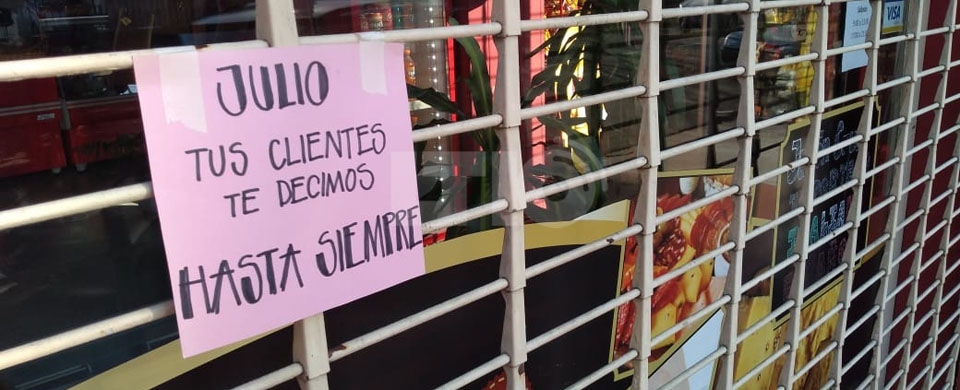 JULIO
TUS CLIENTES
TE DECIMOS
HASTA SIEMPRE
VISA